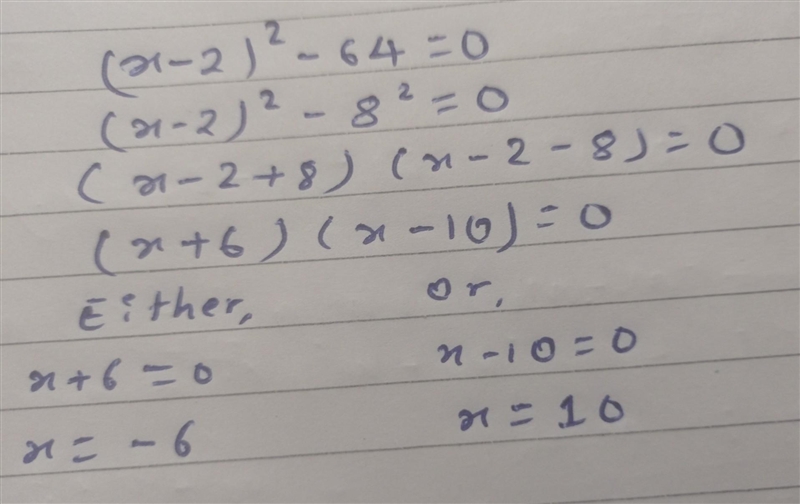 (x-2)² - 64 = 0
(x-2)² - 8² = 0
(x-2+8) (x-2-8) = 0
(x+6) (x-10) = 0
Either, or,
x+6=0 x-10=0
x = -6 x = 10